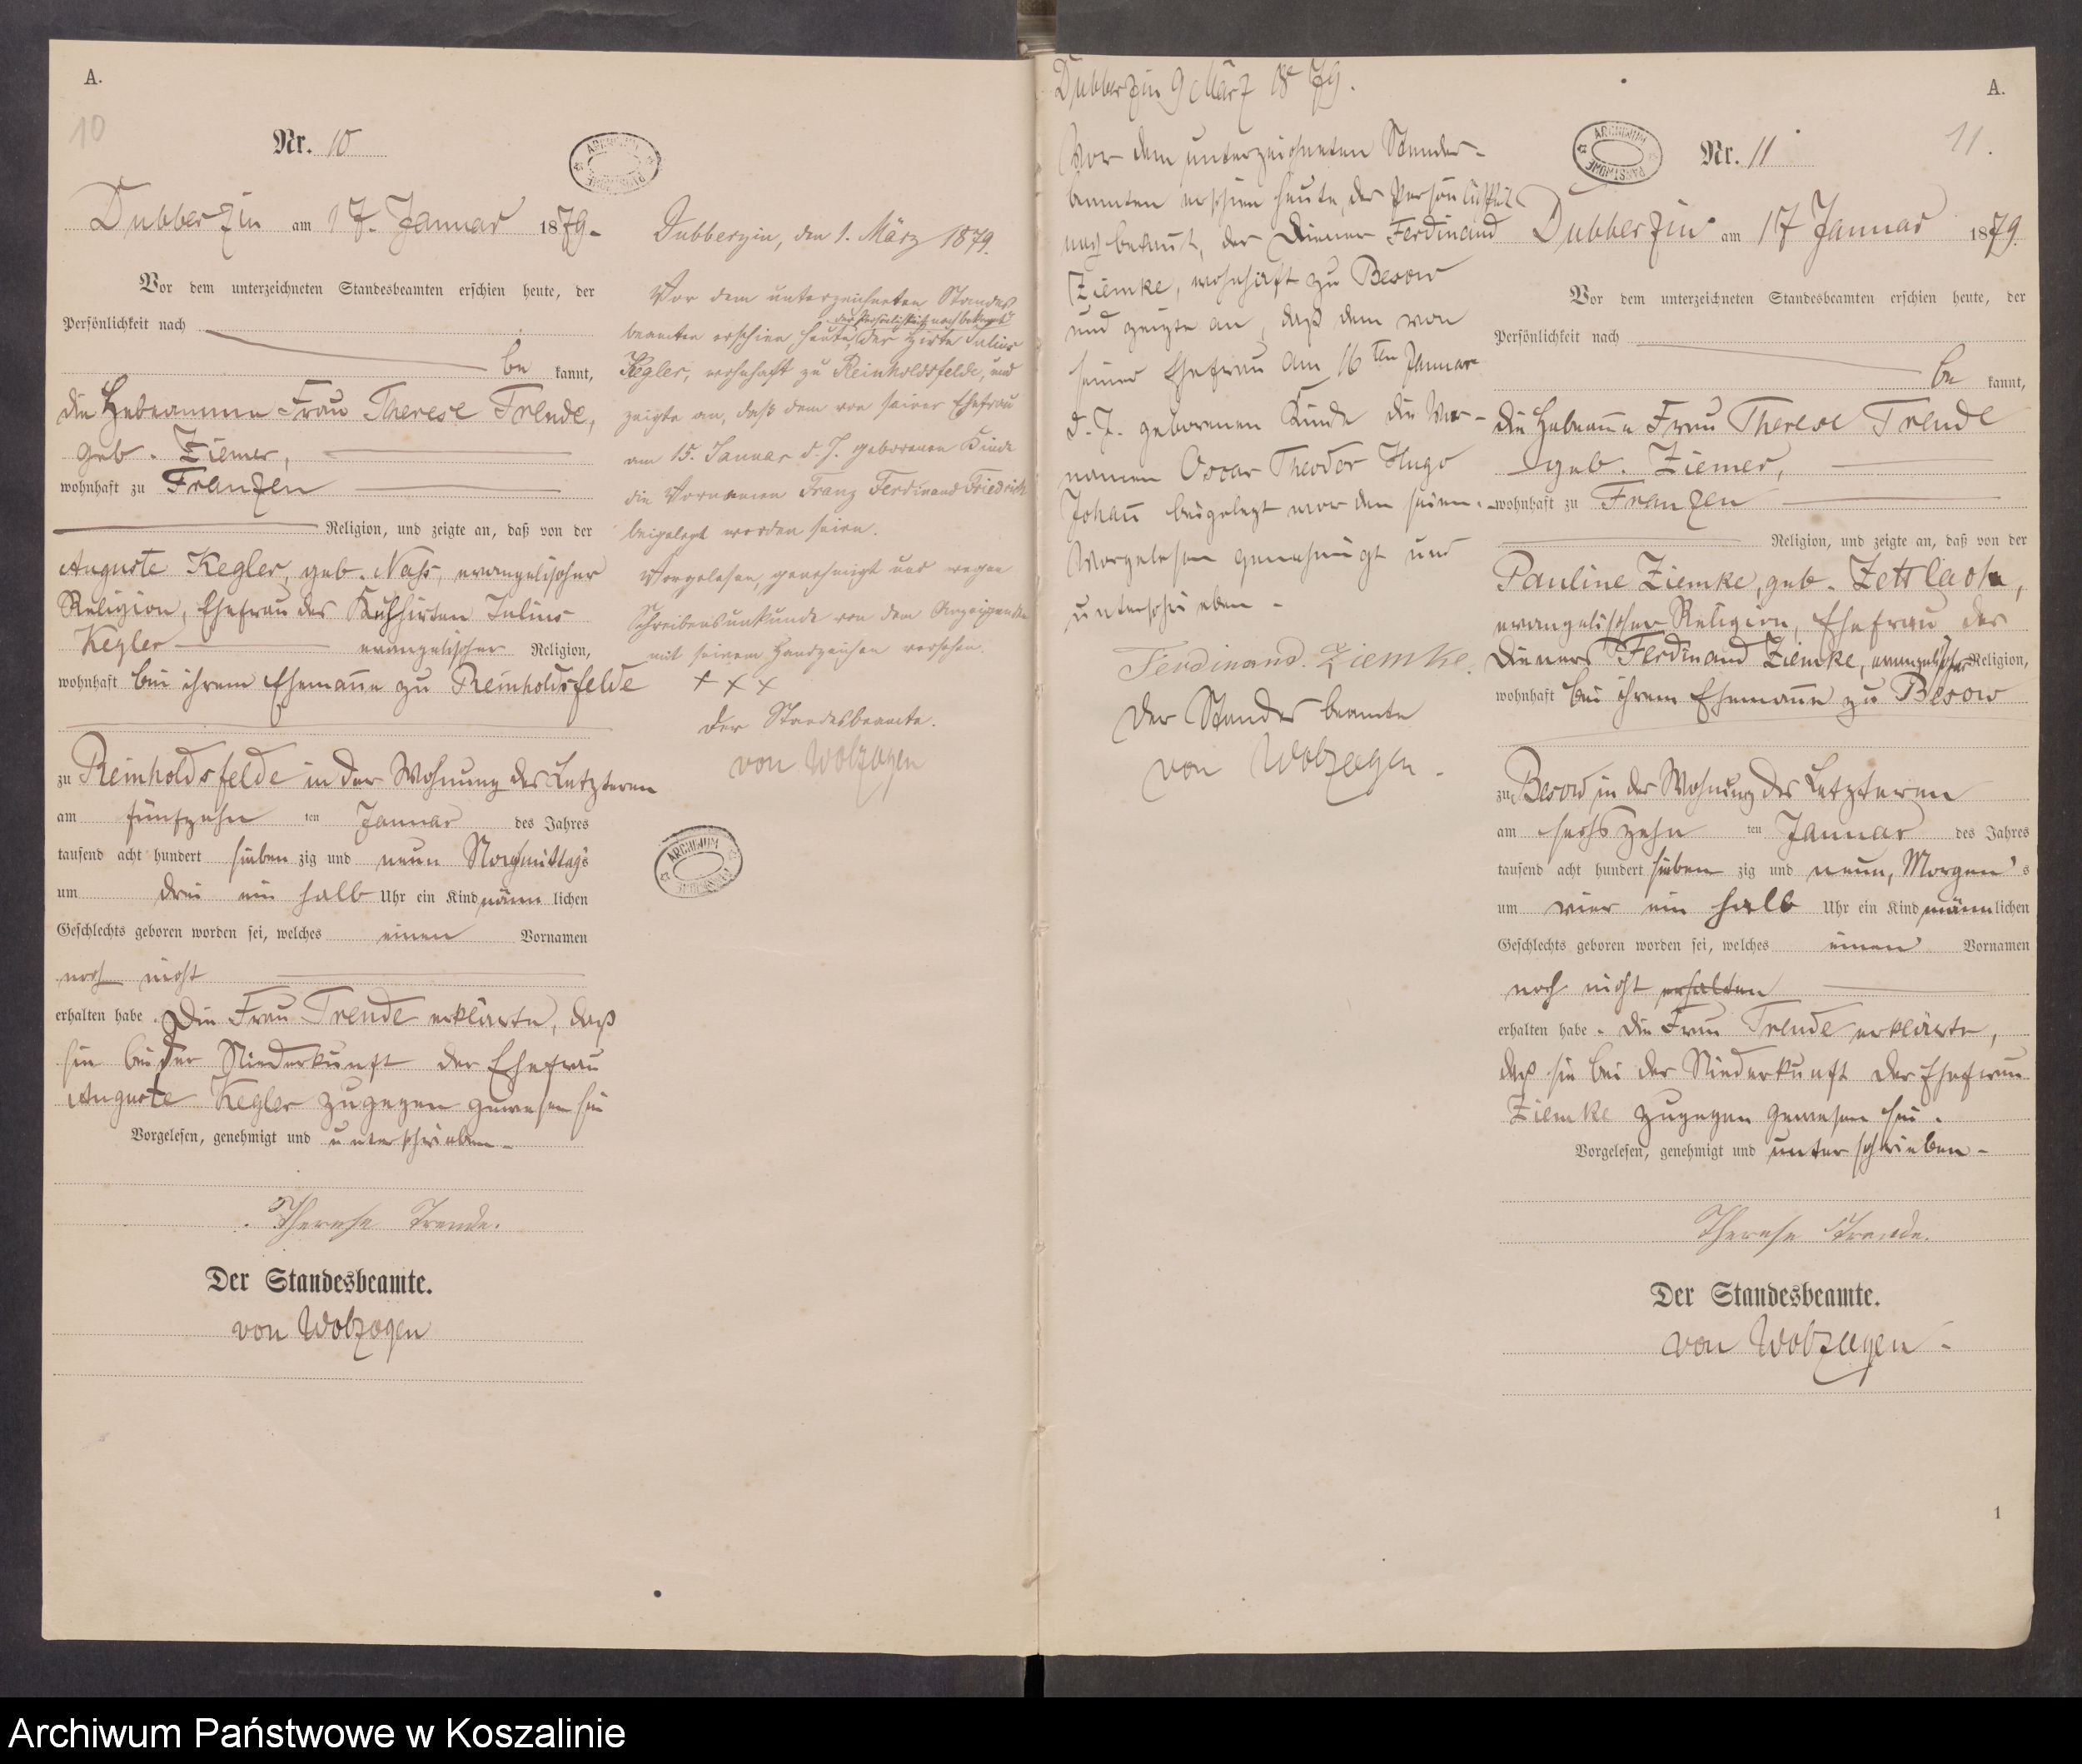 A.
10
Nr. 10
Dubberzin am 17. Januar 1879.
Vor dem unterzeichneten Standesbeamten erschien heute, der
Persönlichkeit nach
be kannt,
die Hebeamme Frau Therese Trende,
geb. Ziemer,
wohnhaft zu Franzen
Religion, und zeigte an, daß von der
Auguste Kegler, geb. Nass, evangelischer
Religion, Ehefrau des Kuhhirten Julius
Kegler evangelischer Religion,
wohnhaft bei ihrem Ehemanne zu Reinholdsfelde
zu Reinholdsfelde in der Wohnung des Letzteren
am fünfzehn ten Januar des Jahres
tausend acht hundert sieben zig und neun Nachmittags
um drei ein halb Uhr ein Kind männ lichen
Geschlechts geboren worden sei, welches einen Vornamen
noch nicht
erhalten habe. Die Frau Trende erklärte, daß
sie bei der Niederkunft der Ehefrau
Auguste Kegler zugegen gewesen sei
Vorgelesen, genehmigt und unterschrieben.
Therese Trende.
Der Standesbeamte.
von Wolzogen
ARCHIWUM PAŃSTWOWE
Dubberzin, den 1. März 1879.
Vor dem unterzeichneten Standes
der Persönlichkeit nach bekannt
beamten erschien heute, der Hirte Julius
Kegler, wohnhaft zu Reinholdsfelde, und
zeigte an, daß dem von seiner Ehefrau
am 15. Januar d. J. geborenen Kinde
die Vornamen Franz Ferdinand Friedrich
beigelegt worden seien.
Vorgelesen, genehmigt und wegen
Schreibensunkunde von dem Anzeigenden
mit seinem Handzeichen versehen.
+ x x
Der Standesbeamte.
von Wolzogen
ARCHIWUM PAŃSTWOWE
Dubberzin 9 März 1879.
Vor dem unterzeichneten Standes-
beamten erschien heute, der Persönlichkeit
nach bekannt, der Diener Ferdinand
Ziemke, wohnhaft zu Besow
und zeigte an, daß dem von
seiner Ehefrau am 16ten Januar
d. J. geborenen Kinde die Vor-
namen Oscar Theodor Hugo
Johann beigelegt worden seien.
Vorgelesen genehmigt und
unterschrieben -
Ferdinand. Ziemke.
Der Standes beamte
von Wolzogen.
A.
ARCHIWUM PAŃSTWOWE
Nr. 11
11.
Dubberzin am 17 Januar 1879.
Vor dem unterzeichneten Standesbeamten erschien heute, der
Persönlichkeit nach
be kannt,
die Hebeamme Frau Therese Trende
geb. Ziemer,
wohnhaft zu Franzen
Religion, und zeigte an, daß von der
Pauline Ziemke, geb.
evangelischer Religion, Ehefrau des
Dieners Ferdinand Ziemke, evangelischer Religion,
wohnhaft bei ihrem Ehemanne zu Besow
zu Besow in der Wohnung des Letzteren
am sechszehn ten Januar des Jahres
tausend acht hundert sieben zig und neun, Morgen's
um vier ein halb Uhr ein Kind männlichen
Geschlechts geboren worden sei, welches einen Vornamen
noch nicht erhalten
erhalten habe. Die Frau Trende erklärte,
daß sie bei der Niederkunft der Ehefrau
Ziemke zugegen gewesen sei.
Vorgelesen, genehmigt und unterschrieben -
Therese Trende.
Der Standesbeamte.
von Wolzogen -
1
Archiwum Państwowe w Koszalinie